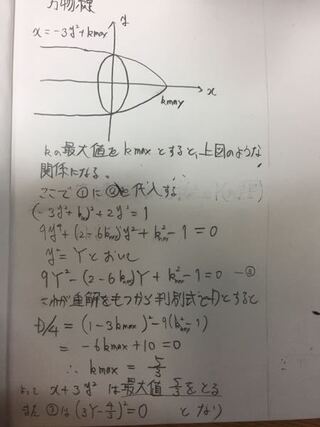 放物線
y
x=-3y²+kmax
x
kmax
kの最大値をkmaxとすると、上図のような
関係になる。
ここで①に②を代入する
(-3y²+k)²+2y²=1
9y⁴+(2-6kmax)y²+k²max-1=0
y²=Yとおいて
9Y²-(2-6kmax)Y+k²max-1=0 -③
これが重解をもつから判別式をDとすると
D/4=(1-3kmax)²-9(k²max-1)
=-6kmax+10=0
∴ kmax=5/3
よって x+3y² は最大値5/3をとる
また③は(3Y-4/3)²=0 となり